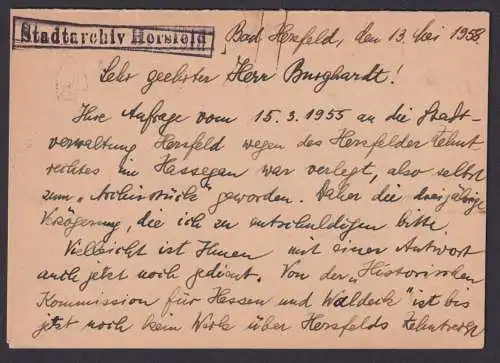 Stadtarchiv Hersfeld
Bad Hersfeld, den 13. Mai 1958.
Sehr geehrter Herr Burghardt!
Ihre Anfrage vom 15.3.1955 an die Stadt-
verwaltung Hersfeld wegen des Hersfelder Zehnt
rechtes im Hassegau war verlegt, also selbst
zum „Archivstück" geworden. Daher die dreijährige
Verzögerung, die ich zu entschuldigen bitte.
Vielleicht ist Ihnen mit einer Antwort
auch jetzt noch gedient. Von der „Historischen
Kommission für Hessen und Waldeck" ist bis
jetzt noch kein Werk über Hersfelds Zehntrecht